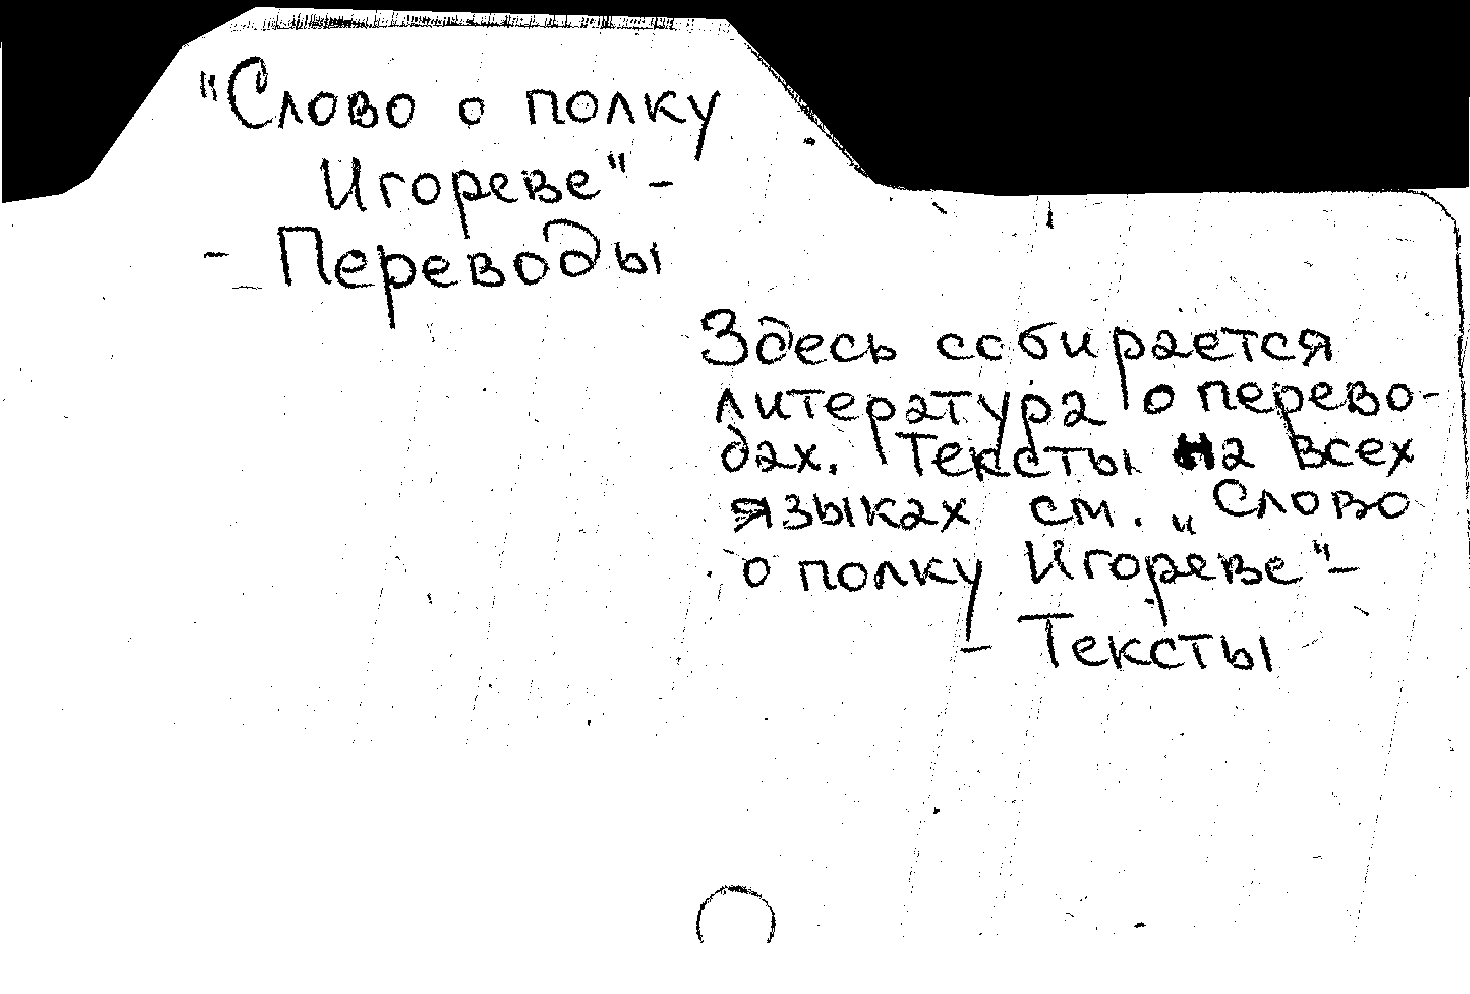 "Слово о полку
Игореве" -
- Переводы
Здесь собирается
литература о перево-
дах. Тексты на всех
языках см. „Слово
о полку Игореве" -
- Тексты